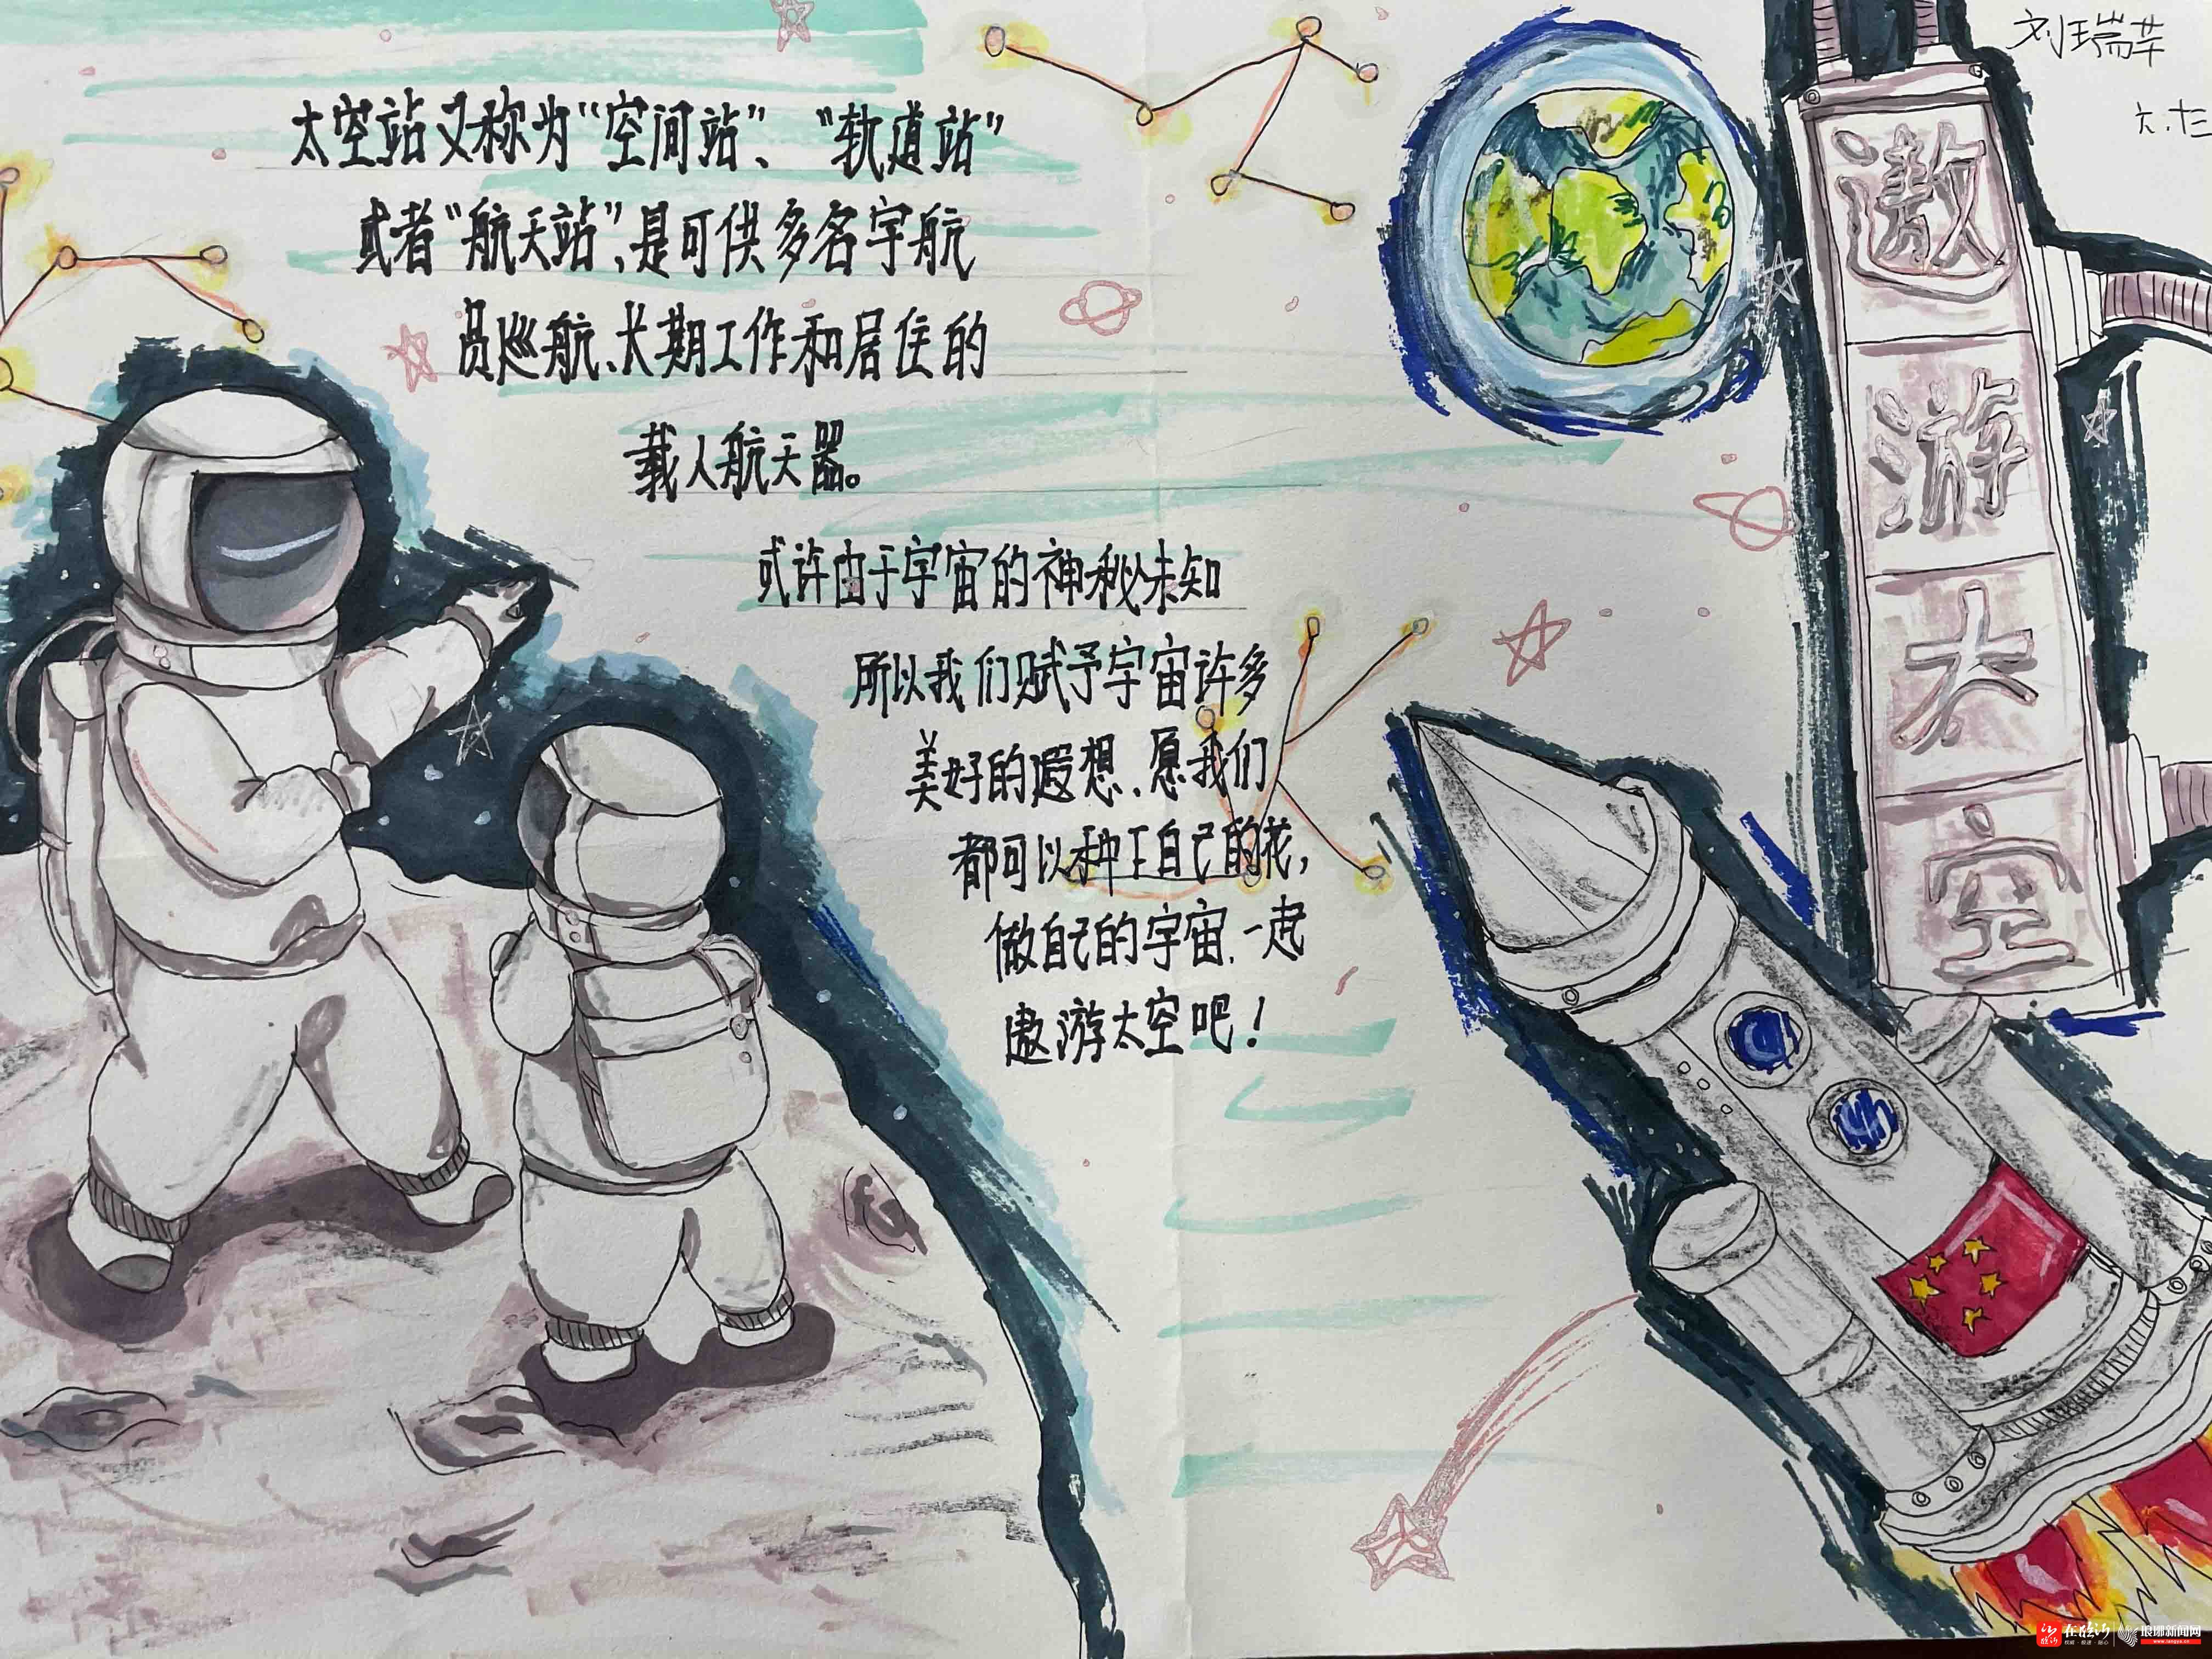 太空站又称为“空间站”、“轨道站”
或者“航天站”，是可供多名宇航
员巡航、长期工作和居住的
载人航天器。
或许由于宇宙的神秘未知
所以我们赋予宇宙许多
美好的遐想、愿我们
都可以种下自己的花，
做自己的宇宙、一起
遨游太空吧！
遨
游
太
空
刘瑞芊
六.十三
在临沂
琅琊新闻网